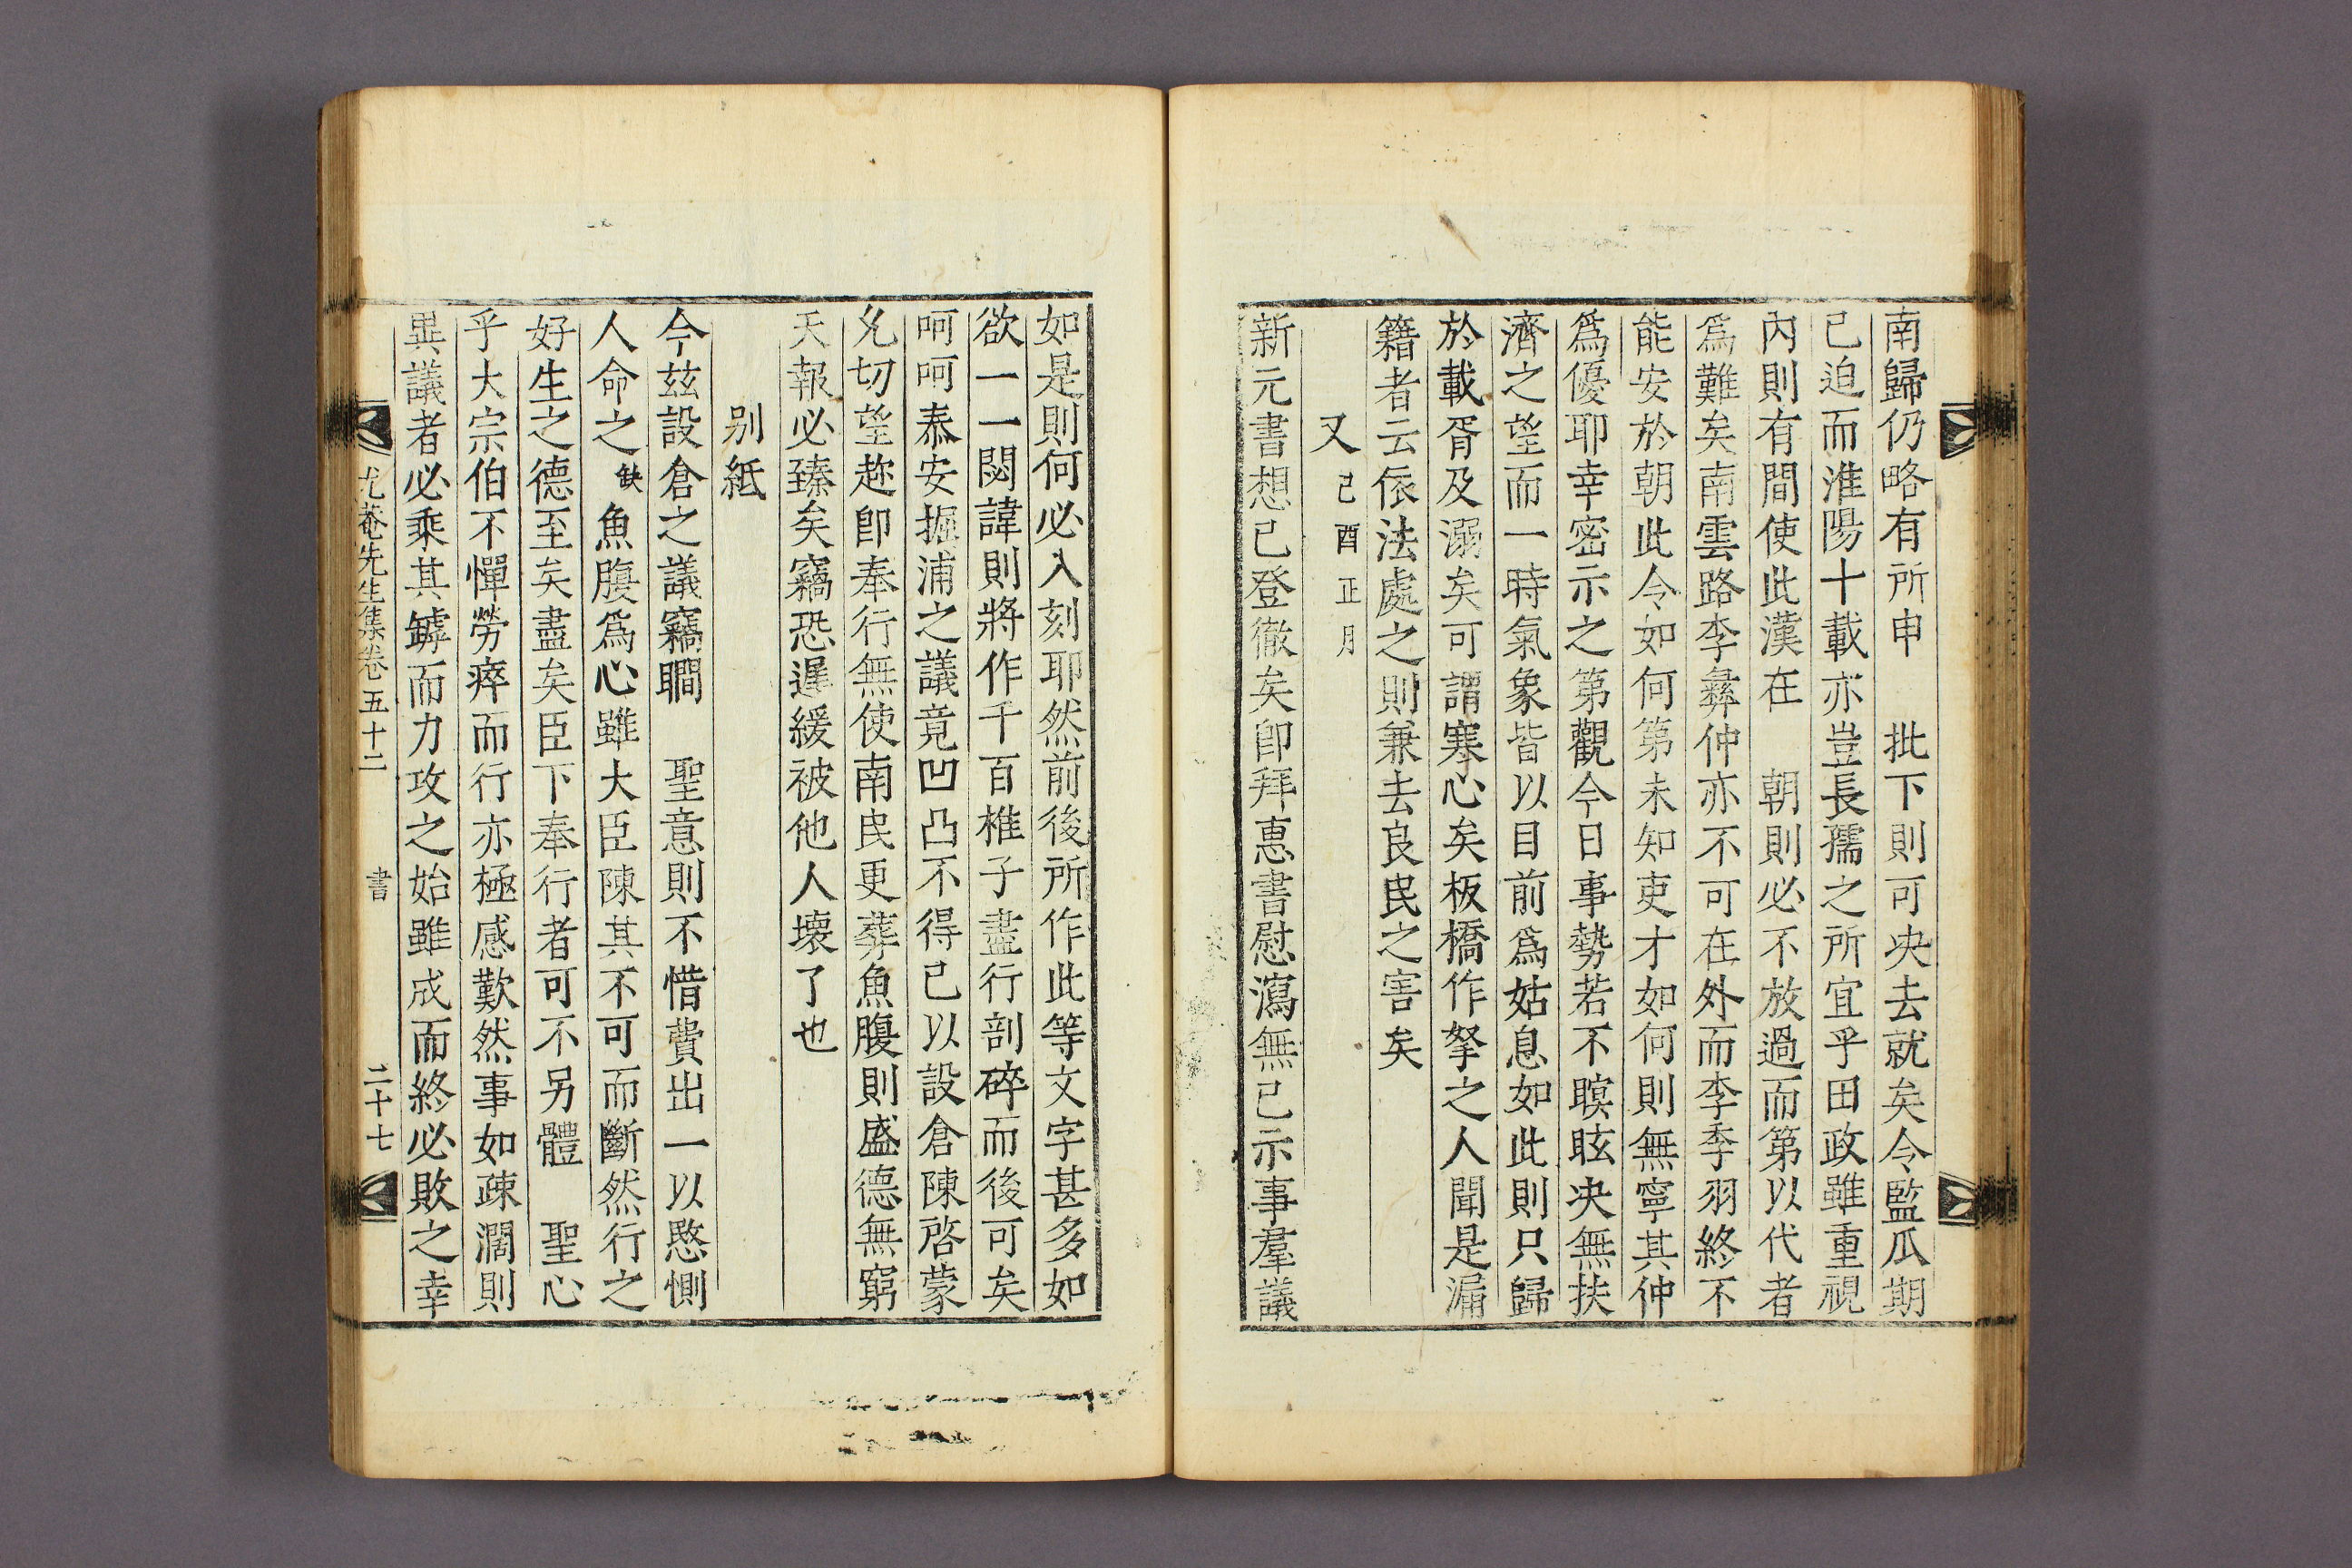 南歸仍略有所申　批下則可决去就矣今監瓜期
已迫而淮陽十載亦豈長孺之所宜乎田政雖重視
內則有間使此漢在　朝則必不放過而第以代者
爲難矣南雲路李彝仲亦不可在外而李季羽終不
能安於朝此今如何第未知吏才如何則無寧其仲
爲優耶幸密示之第觀今日事勢若不瞑眩决無扶
濟之望而一時氣象皆以目前爲姑息如此則只歸
於載胥及溺矣可謂寒心矣板橋作拏之人聞是漏
籍者云依法處之則兼去良民之害矣
又 己酉正月
新元書想已登徹矣卽拜惠書慰瀉無已示事羣議
如是則何必入刻耶然前後所作此等文字甚多如
欲一一閟諱則將作千百椎子盡行剖碎而後可矣
呵呵泰安掘浦之議竟凹凸不得已以設倉陳啓蒙
允切望趂卽奉行無使南民更葬魚腹則盛德無窮
天報必臻矣竊恐遲緩被他人壞了也
別紙
今玆設倉之議竊瞷　聖意則不惜費出一以愍惻
人命之 缺 魚腹爲心雖大臣陳其不可而斷然行之
好生之德至矣盡矣臣下奉行者可不另體　聖心
乎大宗伯不憚勞瘁而行亦極感歎然事如疎濶則
異議者必乘其罅而力攻之始雖成而終必敗之幸
尤菴先生集卷五十二　書　二十七